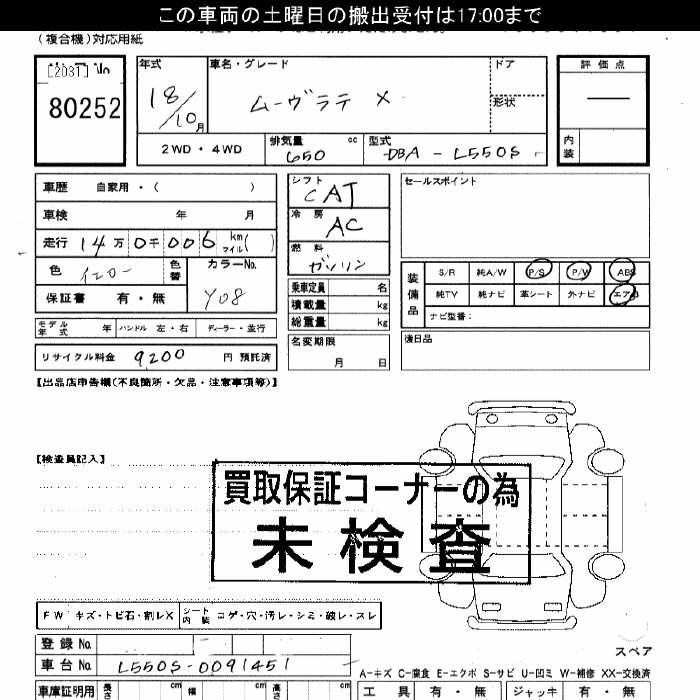 この車両の土曜日の搬出受付は17:00まで
(複合機)対応用紙
[2031] No
80252
年式
18/10月
車名・グレード
ムーヴラテ X
ドア
形状
評価点
—
内装
2WD・4WD
排気量 650 cc
型式 DBA - L550S
車歴 自家用・( )
車検 年 月
走行 14万0千006 km マイル( )
色 イエロー
色替
カラーNo. Y08
保証書 有・無
モデル年式 年 ハンドル 左・右 ディーラー・並行
リサイクル料金 9200 円 預託済
シフト CAT
冷房 AC
燃料 ガソリン
乗車定員 名
積載量 kg
総重量 kg
名変期限
月 日
セールスポイント
装備品
S/R 純A/W P/S P/W ABS
純TV 純ナビ 革シート 外ナビ エアB
ナビ型番:
後日品
【出品店申告欄(不良箇所・欠品・注意事項等)】
【検査員記入】
買取保証コーナーの為
未検査
FW キズ・トビ石・割レX
シート内装 コゲ・穴・汚レ・シミ・破レ・スレ
登録No.
車台No. L550S-0091451
スペア
A-キズ C-腐食 E-エクボ S-サビ U-凹ミ W-補修 XX-交換済
車庫証明用 長さ cm 幅 cm 高さ cm
工具 有・無 ジャッキ 有・無